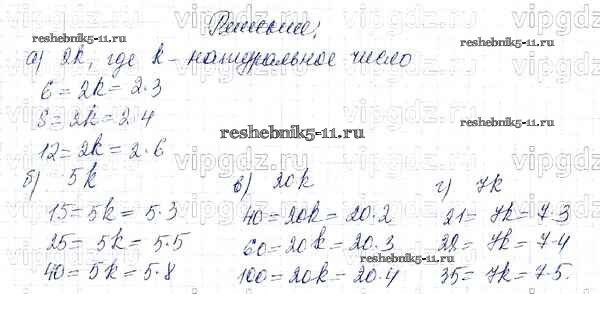 Решение:
а) 2k, где k - натуральное число
6 = 2k = 2·3
8 = 2k = 2·4
12 = 2k = 2·6
б) 5k
15 = 5k = 5·3
25 = 5k = 5·5
40 = 5k = 5·8
в) 20k
40 = 20k = 20·2
60 = 20k = 20·3
100 = 20k = 20·4
г) 7k
21 = 7k = 7·3
28 = 7k = 7·4
35 = 7k = 7·5.
reshebnik5-11.ru
reshebnik5-11.ru
reshebnik5-11.ru
reshebnik5-11.ru
reshebnik5-11.ru
vipgdz.ru
vipgdz.ru
vipgdz.ru